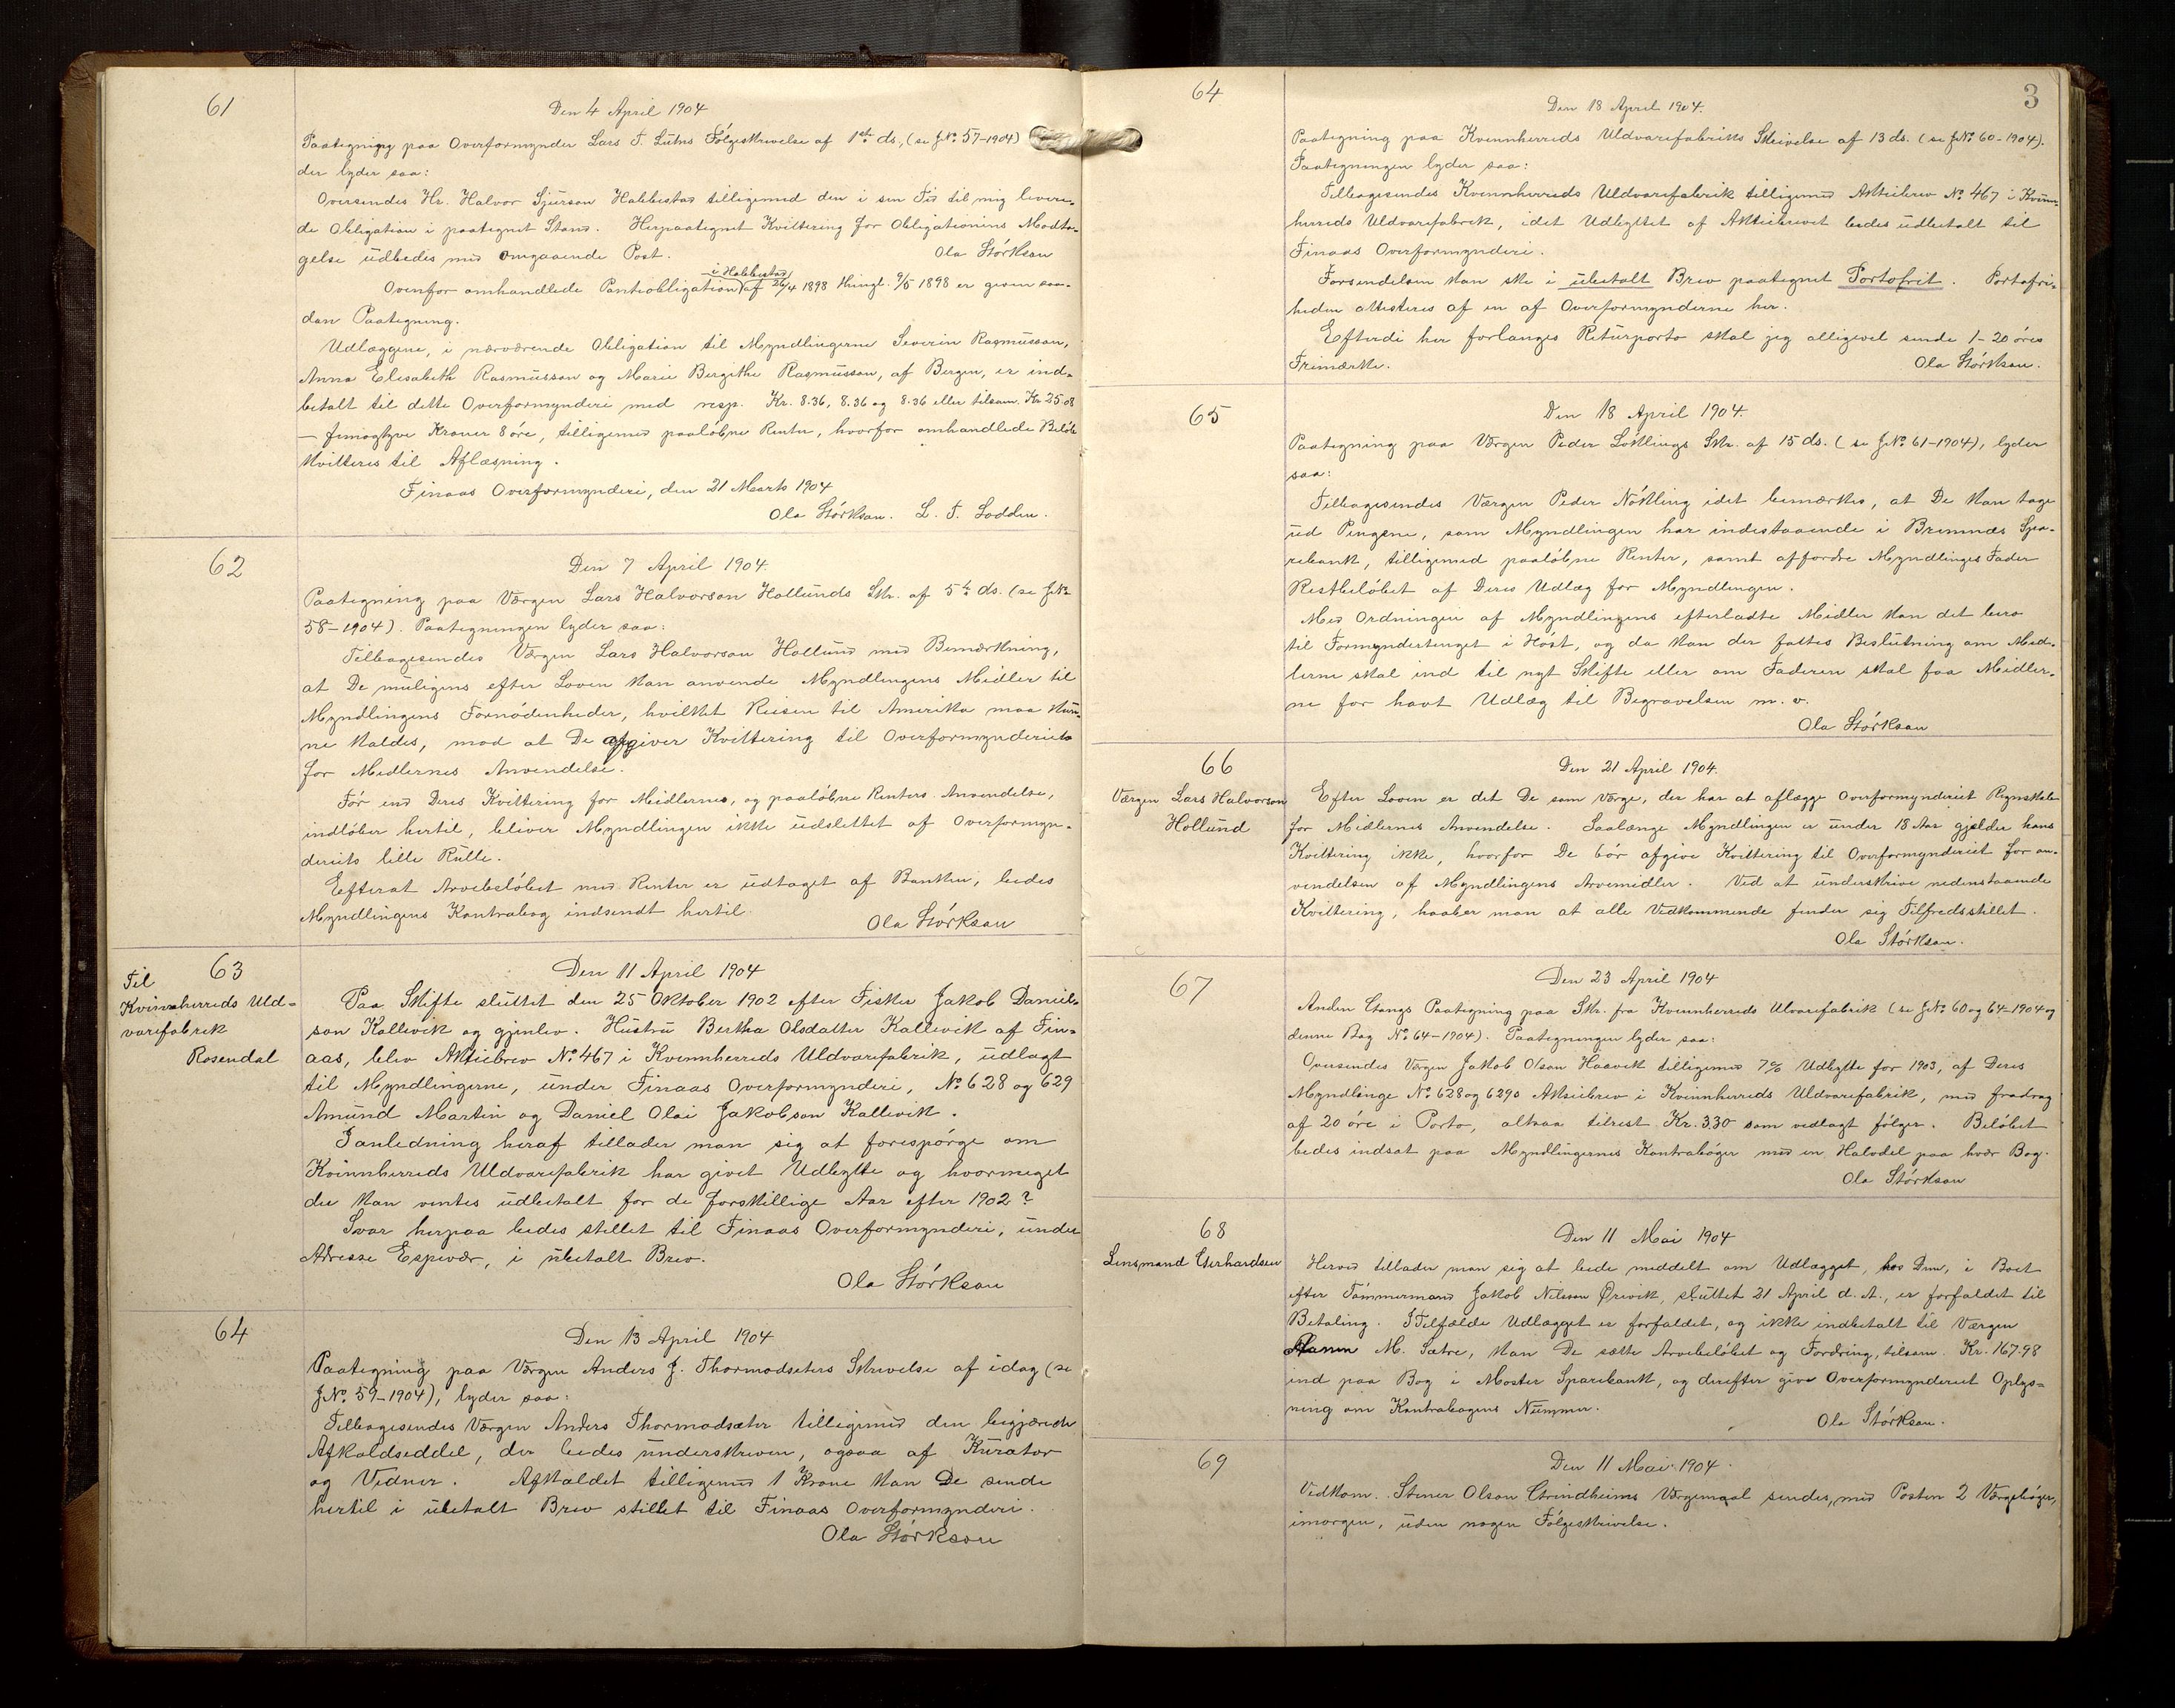 61
Den 4 April 1904
Paategning paa Overformynder Lars T. Lutnes Følgeskrivelse af 1ste ds., (se JNo. 57-1904)
der lyder saa:
Oversendes Hr. Halvor Sjurson Habbestad tilligemed den i sin Tid til mig levere-
de Obligation i paategnet Stand. Herpaategnet Kvittering for Obligationens Modta-
gelse udbedes med omgaaende Post. Ola Størkson
i Habbestad
Ovenfor omhandlede Panteobligation af 26/4 1898 thingl. 9/5 1898 er given saa-
dan Paategning.
Udlæggene, i nærværende Obligation til Myndlingerne Severin Rasmusson,
Anna Elisabeth Rasmusson og Marie Bergithe Rasmusson, af Bergen, er ind-
betalt til dette Overformynderi med resp. Kr. 8.36, 8.36 og 8.36 eller tilsam. Kr 25.08
— femogtyve Kroner 8 øre, tilligemed paaløbne Renter, hvorfor omhandlede Beløb
kvitteres til Aflæsning.
Finaas Overformynderi, den 21 Marts 1904
Ola Størkson. L. T. Lodden.
62
Den 7 April 1904.
Paategning paa Værgen Lars Halvorson Hollunds Skr. af 5te ds. (se JNo.
58-1904). Paategningen lyder saa:
Tilbagesendes Værgen Lars Halvorson Hollund med Bemærkning,
at De muligens efter Loven kan anvende Myndlingens Midler til
Myndlingens Fornødenheder, hvilket Reisen til Amerika maa kun-
ne kaldes, mod at De afgiver Kvittering til Overformynderiets
for Midlernes Anvendelse.
Før end Deres Kvittering for Midlernes, og paaløbne Renters Anvendelse,
indløber hertil, bliver Myndlingen ikke udslettet af Overformyn-
deriets lille Rulle.
Efterat Arvebeløbet med Renter er udtaget af Banken, bedes
Myndlingens Kontrabog indsendt hertil.
Ola Størkson
63
Til
Kvinnherreds Uld-
varefabrik
Rosendal
Den 11 April 1904
Paa Skifte sluttet den 25 Oktober 1902 efter Fisker Jakob Daniel-
son Kallevik og gjenlev. Hustru Bertha Olsdatter Kallevik af Fin-
aas, blev Aktiebrev No. 467 i Kvinnherreds Uldvarefabrik, udlagt
til Myndlingerne, under Finaas Overformynderi, No. 628 og 629
Amund Martin og Daniel Olai Jakobson Kallevik.
I anledning heraf tillader man sig at forespørge om
Kvinnherreds Uldvarefabrik har givet Udbytte og hvormeget
der kan ventes udbetalt for de forskillige Aar efter 1902?
Svar herpaa bedes stillet til Finaas Overformynderi, under
Adresse Espevær, i ubetalt Brev.
Ola Størkson
64
Den 13 April 1904
Paategning paa Værgen Anders J. Thormodsæters Skrivelse af idag (se
JNo. 59-1904), lyder saa:
Tilbagesendes Værgen Anders Thormodsæter tilligemed den begjærede
Afkaldseddel, der bedes underskreven, ogsaa af Kurator
og Vidner. Afkaldet tilligemed 1 Krone kan De sende
hertil i ubetalt Brev stillet til Finaas Overformynderi.
Ola Størkson
3
64
Den 18 April 1904.
Paategning paa Kvinnherreds Uldvarefabriks Skrivelse af 13 ds. (se JNo. 60-1904).
Paategningen lyder saa:
Tilbagesendes Kvinnherreds Uldvarefabrik tilligemed Aktiebrev No. 467 i Kvinn-
herreds Uldvarefabrik, idet Udbyttet af Aktiebrevet bedes udbetalt til
Finaas Overformynderi.
Forsendelsen kan ske i ubetalt Brev paategnet Portofrit. Portofri-
heden attesteres af en af Overformynderne her.
Efterdi her forlanges Returporto skal jeg alligevel sende 1-20 øres
Frimærke. Ola Størkson.
65
Den 18 April 1904.
Paategning paa Værgen Peder Løklings Skr. af 15 ds. (se JNo. 61-1904), lyder
saa:
Tilbagesendes Værgen Peder Nøkling idet bemærkes, at De kan tage
ud Pengene, som Myndlingen har indestaaende i Bremnæs Spa-
rebank, tilligemed paaløbne Renter, samt affordre Myndlinges Fader
Restbeløbet af Deres Udlæg for Myndlingen.
Med Ordningen af Myndlingens efterladte Midler kan det bero
til Formyndertinget i Høst, og da kan der fattes Beslutning om Mid-
lerne skal ind til nyt Skifte eller om Faderen skal faa Midler-
ne for havt Udlæg til Begravelsen m. v.
Ola Størkson
66
Værgen Lars Halvorson
Hollund
Den 21 April 1904.
Efter Loven er det De som Værge, der har at aflægge Overformynderiet Regnskab
for Midlernes Anvendelse. Saalænge Myndlingen er under 18 Aar gjælder hans
Kvittering ikke, hvorfor De bør afgive Kvittering til Overformynderiet for an-
vendelsen af Myndlingens Arvemidler. Ved at underskrive nedenstaaende
Kvittering, haaber man at alle Vedkommende finder sig Tilfredsstillet.
Ola Størkson.
67
Den 23 April 1904
Anden Gangs Paategning paa Skr. fra Kvinnherreds Ulvarefabrik (se JNo. 60 og 64-1904 og
denne Bog No. 64-1904). Paategningen lyder saa:
Oversendes Værgen Jakob Olson Haavik tilligemed 7% Udbytte for 1903, af Deres
Myndlinge No. 628 og 629s Aktiebrev i Kvinnherreds Uldvarefabrik, med fradrag
af 20 øre i Porto, altsaa tilrest Kr. 3.30 som vedlagt følger. Beløbet
bedes indsat paa Myndlingernes Kontrabøger med en Halvdel paa hver Bog.
Ola Størkson
68
Lensmand Gerhardsen
Den 11 Mai 1904
Herved tillader man sig at bede meddelt om Udlægget, hos Dem, i Boet
efter Tømmermand Jakob Nilsson Ørevik, sluttet 21 April d. A., er forfaldet til
Betaling. I Tilfælde Udlægget er forfaldet, og ikke indbetalt til Værgen
M. Sætre, kan De sætte Arvebeløbet og Fordring, tilsam. Kr. 167.98
ind paa Bog i Moster Sparebank, og derefter give Overformynderiet Oplys-
ning om Kontrabogens Nummer.
Ola Størkson.
69
Den 11 Mai 1904.
Vedkom. Stener Olson Grindheims Værgemaal sendes, med Posten 2 Værgebøger,
imorgen, uden nogen Følgeskrivelse.